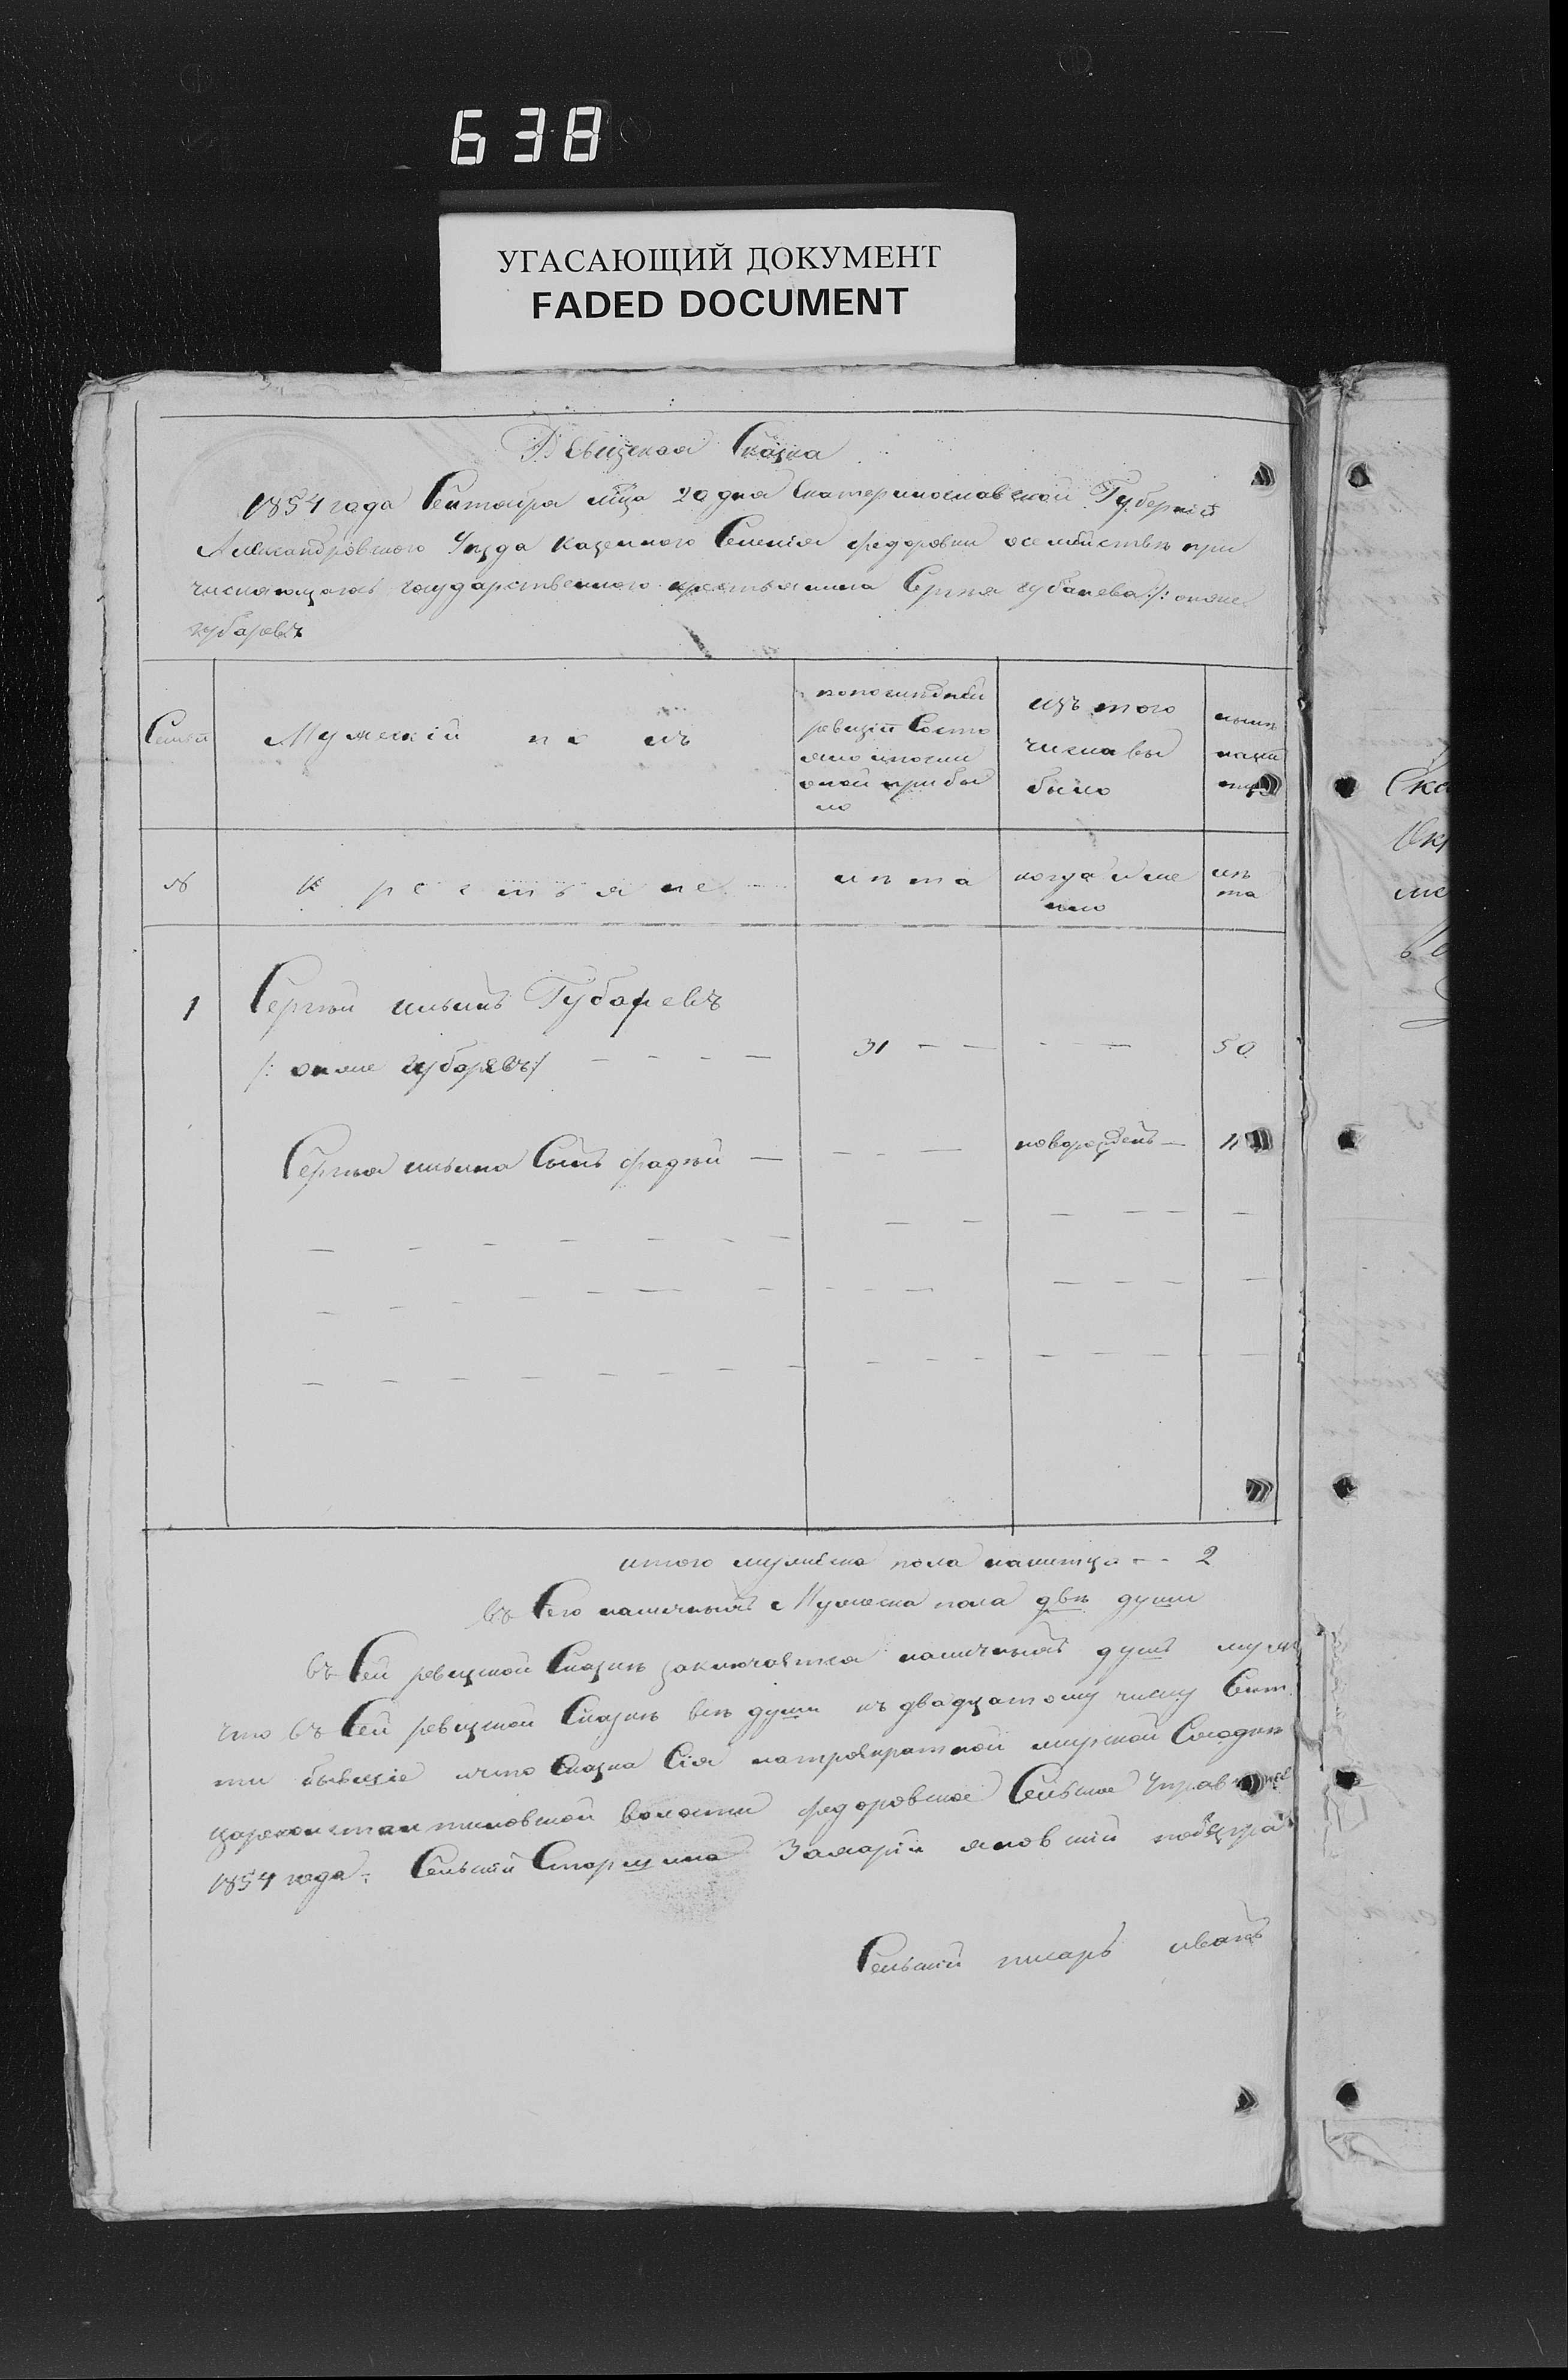 638
УГАСАЮЩИЙ ДОКУМЕНТ
FADED DOCUMENT
Ревизская Сказка
1854 года Сентября мца 20 дня Екатеринославской Губерніи
Александровского Уезда казенного Селенія федоровки осемействѣ при
числяющагося государственного крестьянина Сергея губарева /: онже
губаревъ
Семьи
Мужескій полъ
попоследней
ревизіи Состо
яло ипосли
оной прибы
ло
изъ того
числа вы
было
нынѣ
налицо
№
Крестьяне
лѣта
когда имен
но
лѣ
та
1
Сергѣй ильинъ Губаревъ
/: онже губаревъ :/
31
50
Сергѣя ильина Сынъ фадѣй
новорожденъ
11
итого мужеска пола налицо 2
въ Сего наличныхъ Мужеска пола двѣ души
въ Сей ревизкой Сказкѣ заключается наличныхъ душъ муж
что въ Сей ревизкой Сказкѣ всѣ души къ двадцатому числу Сент
ти бывшіе ичто Сказка Сія натроекратной мирской Сходкѣ
цареконстантиновской волости федоровское Сельское Управленіе
1854 года. Сельскій Старшина Захарій яновскій
Сельскій писарь иванъ
Ска